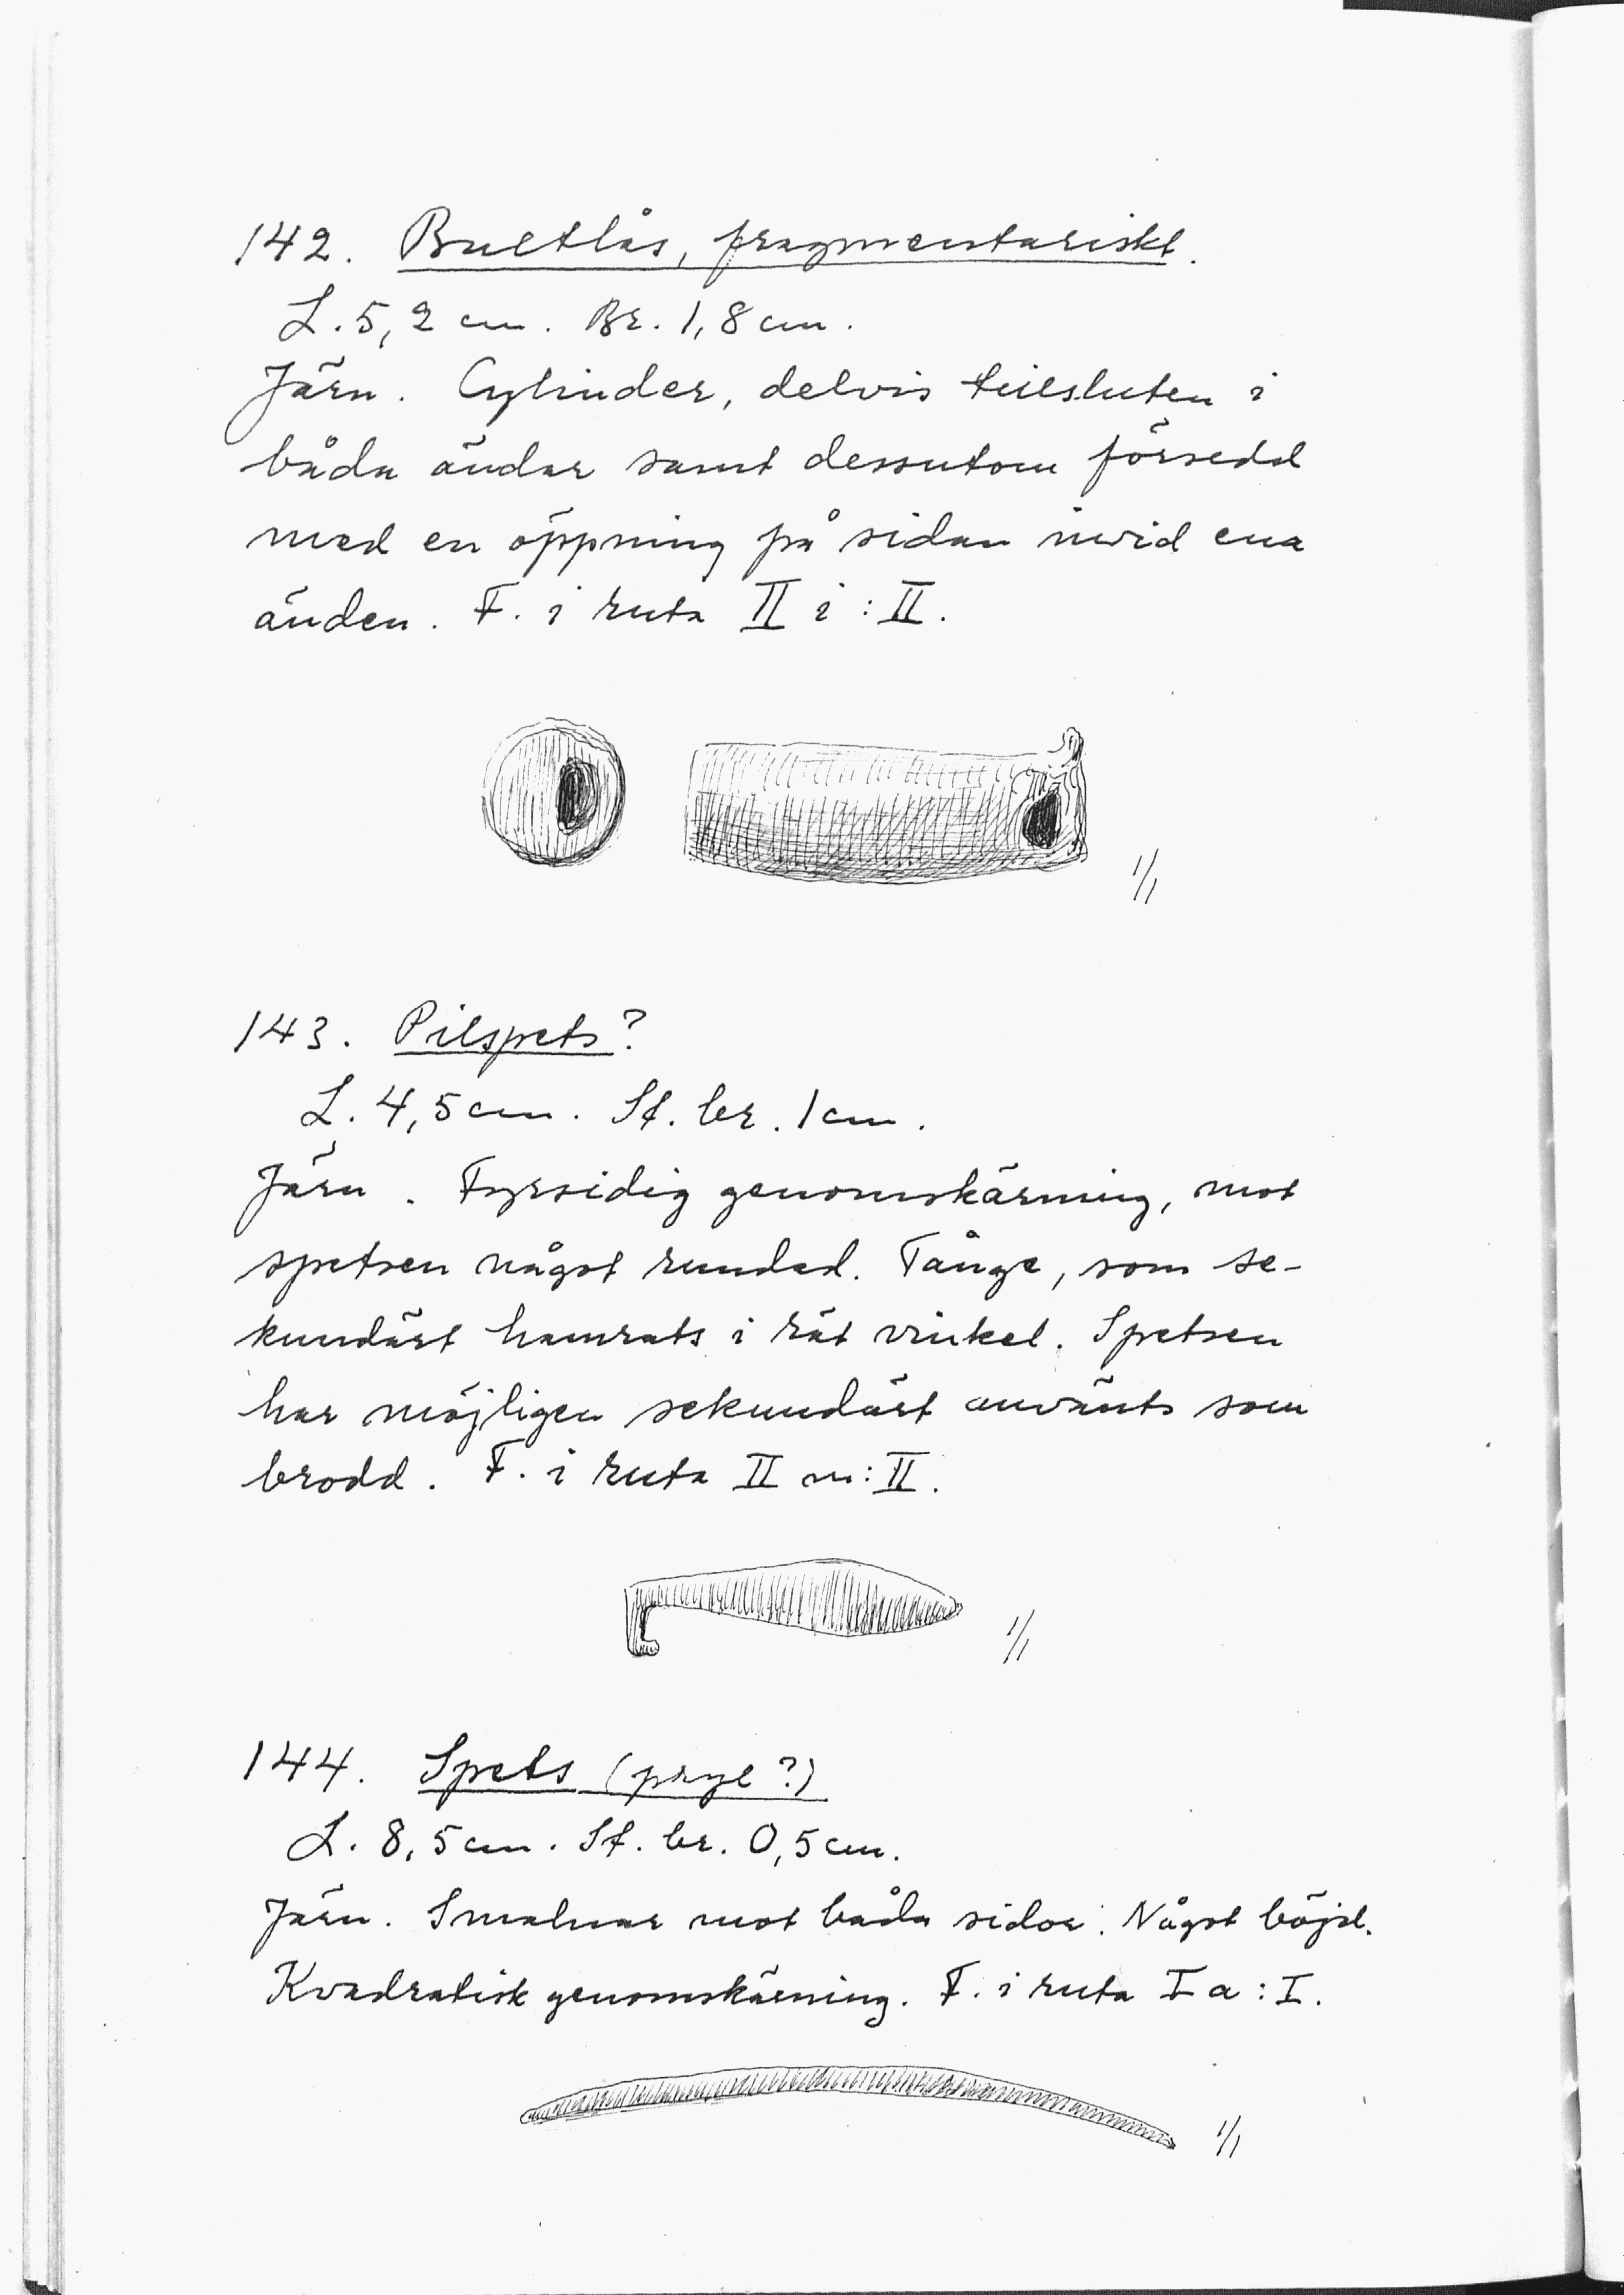 142. Bultlås, fragmentariskt.
L. 5,2 cm. Br. 1,8 cm.
Järn. Cylinder, delvis tillsluten i
båda ändar samt dessutom försedd
med en öppning på sidan invid ena
änden. F. i ruta II i : II.
1/1
143. Pilspets?
L. 4,5 cm. St. br. 1 cm.
Järn. Fyrsidig genomskärning, mot
spetsen något rundad. Tånge, som se-
kundärt hamrats i rät vinkel. Spetsen
har möjligen sekundärt använts som
brodd. F. i ruta II m : II.
1/1
144. Spets (pryl?)
L. 8,5 cm. St. br. 0,5 cm.
Järn. Smalnar mot båda sidor. Något böjd.
Kvadratisk genomskärning. F. i ruta I a : I.
1/1